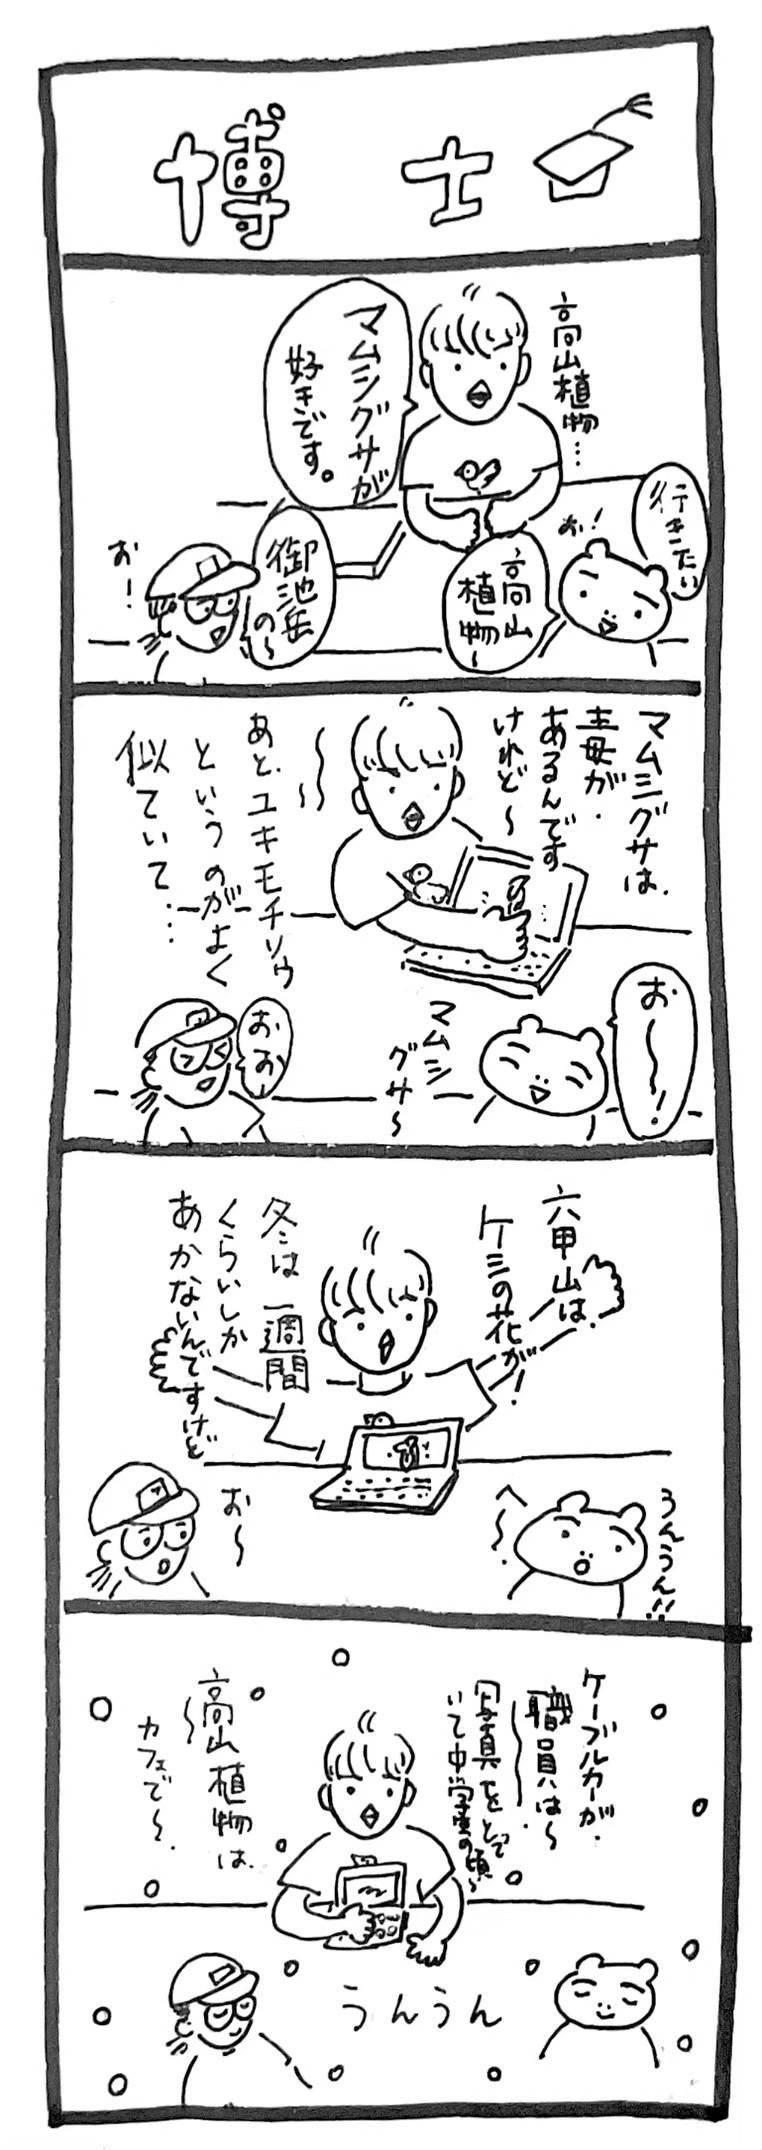 博士
高山植物…
マムシグサが
好きです。
行きたい
お!
高山
植物〜
御池岳
の〜
お!
マムシグサは、
毒が、
あるんです
けれど〜
あと、ユキモチソウ
というのがよく
似ていて…
お〜〜!
マムシ
グサ〜
おお!
六甲山は、
ケシの花が!
冬は一週間
くらいしか
あかないんですけど
うんうん!!
へ〜。
お〜
ケーブルカーが、
職員は〜
写真をとって
いて中学生の頃〜
高山植物は、
カフェで〜、
うんうん